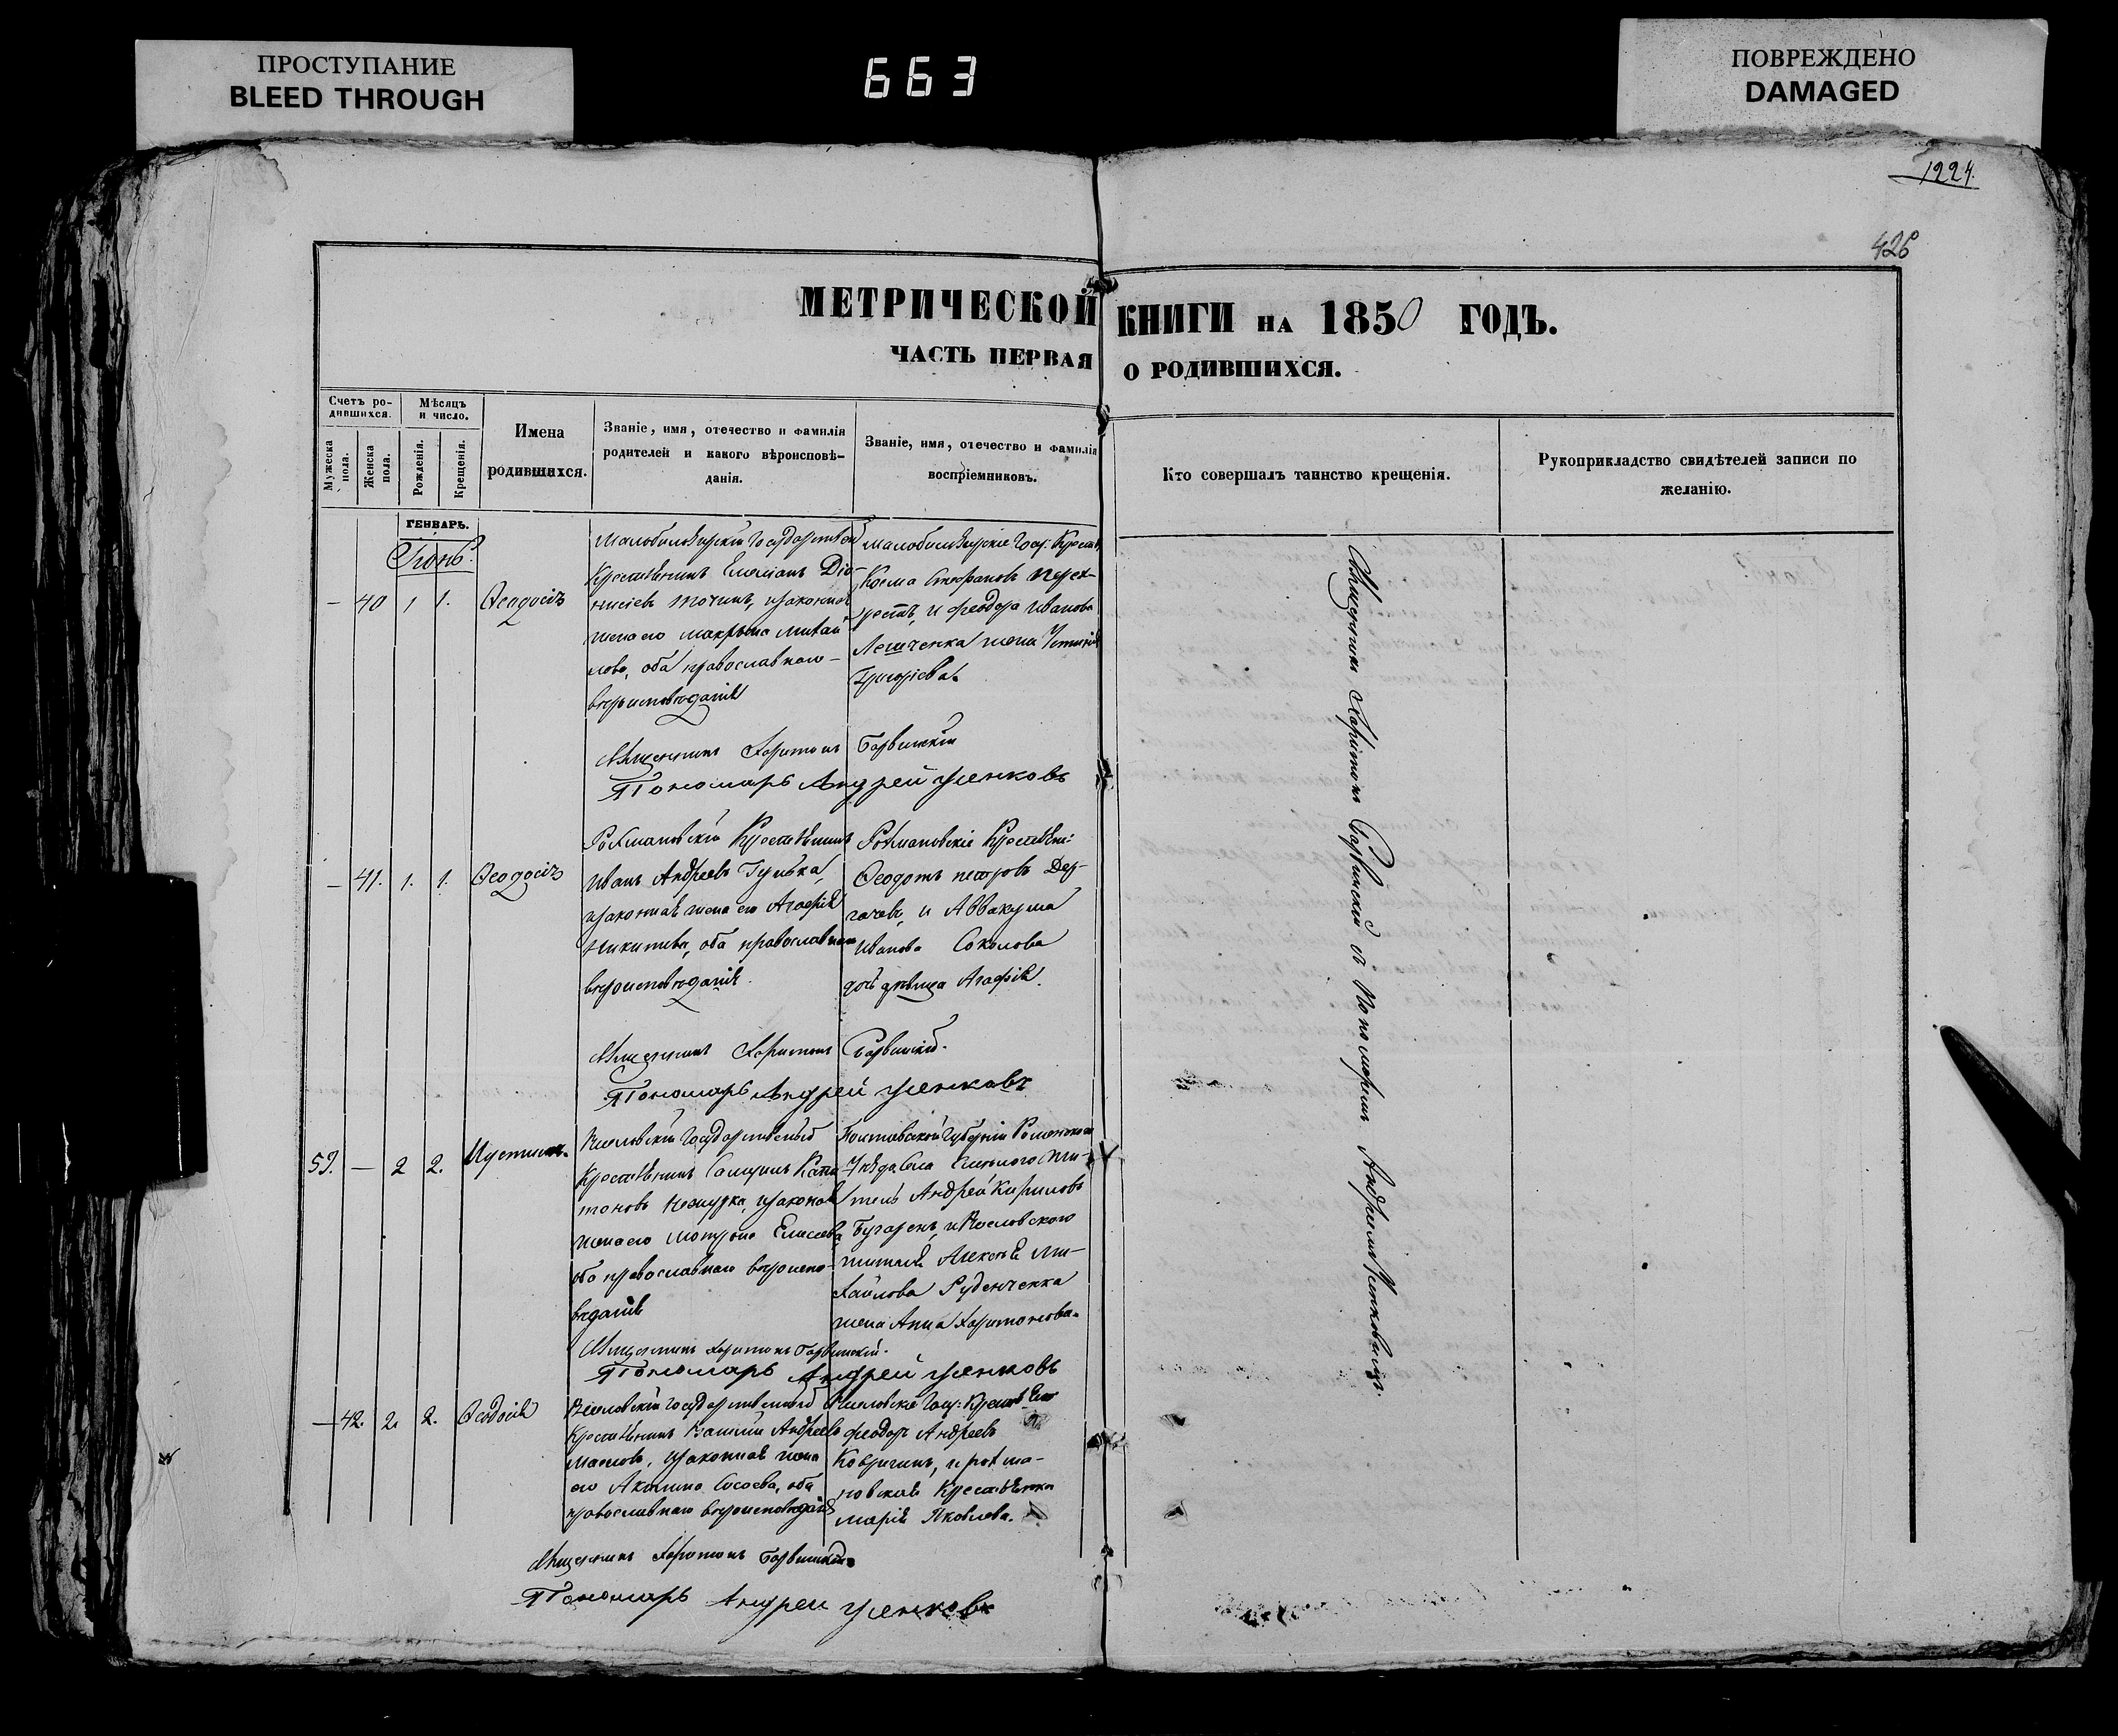 ПРОСТУПАНИЕ
BLEED THROUGH
663
ПОВРЕЖДЕНО
DAMAGED
1224.
426
МЕТРИЧЕСКОЙ КНИГИ НА 1850 ГОДЪ.
ЧАСТЬ ПЕРВАЯ О РОДИВШИХСЯ.
Счетъ ро-
дившихся.
Мужеска
пола.
Женска
пола.
Мѣсяцъ
и число.
Рожденія.
Крещенія.
Имена
родившихся.
Званіе, имя, отечество и фамилія
родителей и какого вѣроисповѣ-
данія.
Званіе, имя, отечество и фамилія
воспріемниковъ.
Кто совершалъ таинство крещенія.
Рукоприкладство свидѣтелей записи по
желанію.
ГЕНВАРЬ.
Іюнь.
— 40 1 1. Ѳеодосія
Крестьянинъ Емеліанъ Діо-
нисіевъ Точинъ, и законная
жена его Макрына Михай
лова, оба православнаго
вѣроисповѣданія
Косма Стефановъ Перех-
рестъ, и Феодора Иванова
Лешченка жена Устинія
Григоріева.
Священникъ Харитонъ Барвинскій
Пономарь Андрей Уленковъ
— 41. 1. 1. Ѳеодосія
Рохмановскій Крестьянинъ
Иванъ Андреевъ Гулька,
и законная жена его Агафія
Никитина, оба православнаго
вѣроисповѣданія.
Рохмановскіе Крестьяни:
Ѳеодотъ Петровъ Дер-
гачевъ, и Аввакума
Иванова Соколова
дочь дѣвица Агафія.
Священникъ Харитонъ Барвинскій.
Пономарь Андрей Уленковъ
59. — 2 2. Иустинъ.
Государственный
Крестьянинъ Самуилъ Капи
тоновъ и законная
жена его Мотрона Елисеева
оба православнаго вѣроиспо-
вѣданія
Полтавской Губерніи Роменскаго
Уѣзда Села жи-
тель Андрей Кириловъ
Алексѣя Ми-
хайлова Руденченка
жена Анна Харитонова.
Священникъ Харитонъ Барвинскій.
Пономарь Андрей Уленковъ
— 42. 2. 2. Ѳеодосія
Государственный
Крестьянинъ Василій Андреевъ
Масловъ, и законная жена
его Акилина Сысоева, оба
православнаго вѣроисповѣданія
Феодоръ Андреевъ
Ковригинъ, и Рохма-
новская Крестьянка
Марія Яковлева.
Священникъ Харитонъ Барвинскій
Пономарь Андрей Уленковъ
Священникъ Харитонъ Барвинскій съ Пономаремъ Андреемъ Уленковымъ.